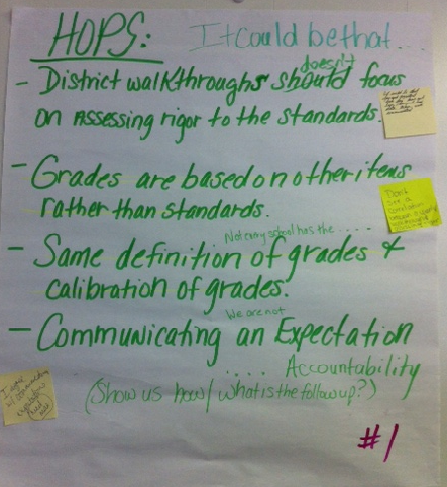 HOPS: It could be that...
doesn't
- District walkthroughs should focus
on Assessing rigor to the standards
- Grades are based on other items
rather than standards.
Not every school has the ....
- Same definition of grades &
calibration of grades.
We are not
- Communicating an Expectation
.... Accountability
(Show us how / what is the follow up?)
#1
Don't
see a
correlation